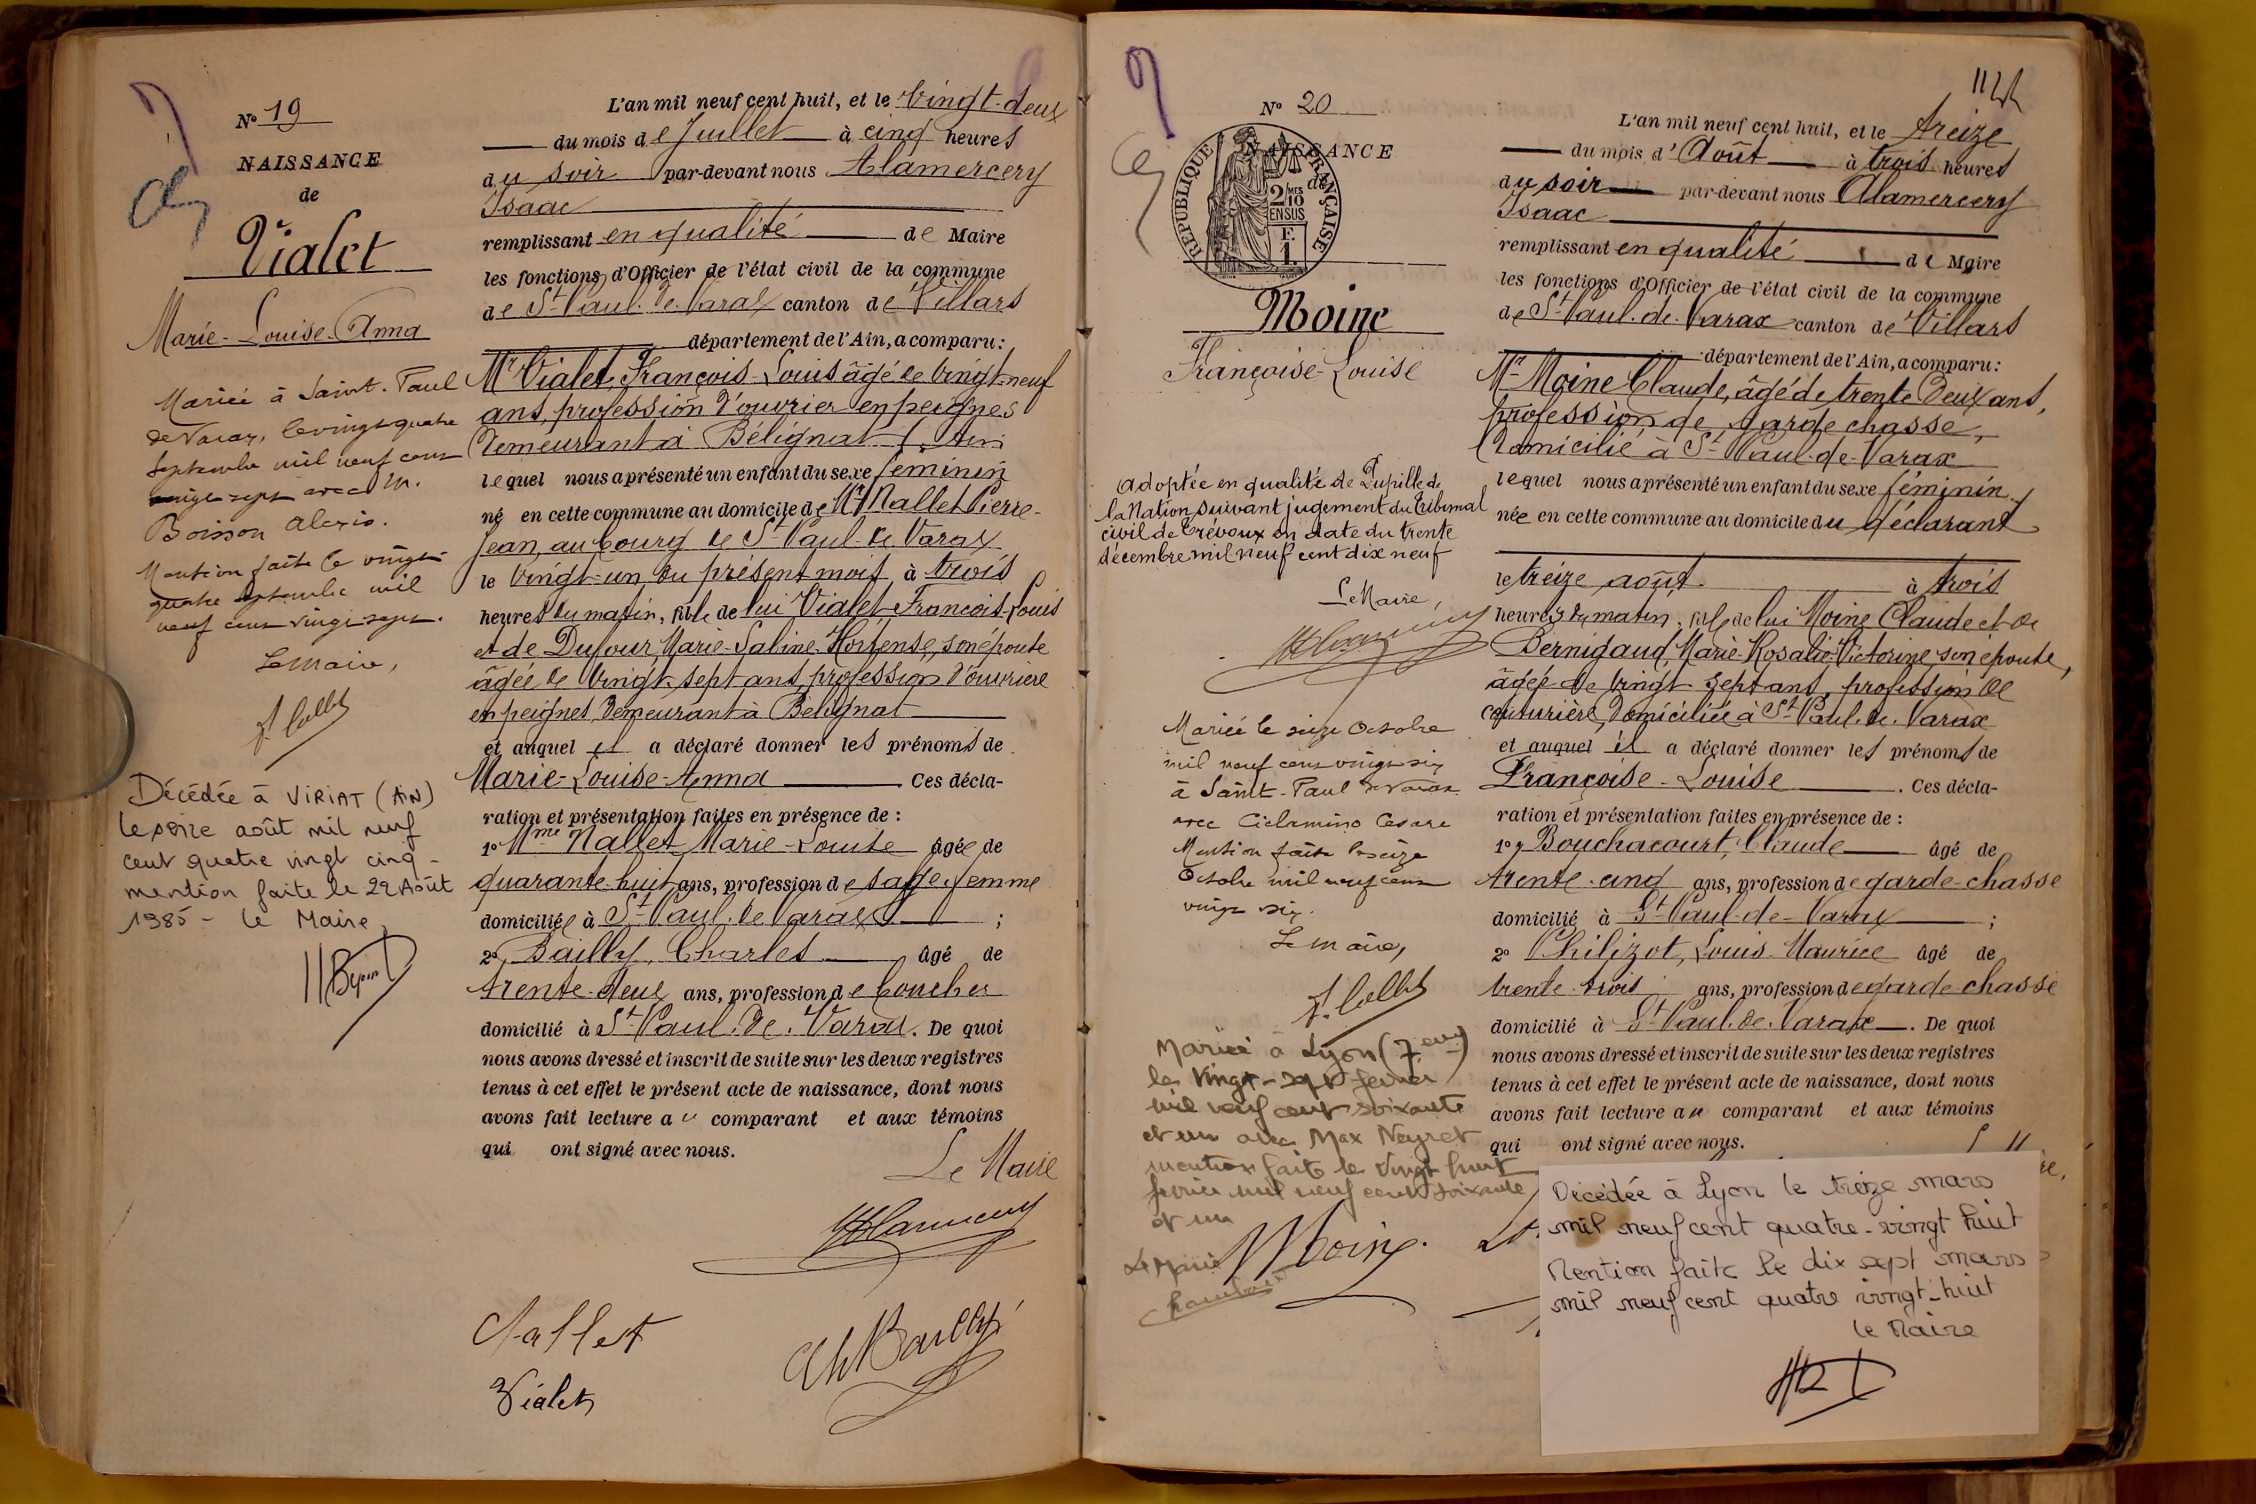 N° 19
NAISSANCE
de
Vialet
Marie-Louise-Anna
Mariée à Saint-Paul
de Varax, le vingt quatre
septembre mil neuf cent
vingt sept avec M.
Boisson Alexis.
Mention faite le vingt
quatre septembre mil
neuf cent vingt sept.
Le Maire,
Décédée à VIRIAT (AIN)
le seize août mil neuf
cent quatre vingt cinq -
mention faite le 22 Août
1985 - Le Maire,
L'an mil neuf cent huit, et le vingt-deux
du mois de Juillet à cinq heures
du soir par-devant nous Alamercery
Isaac
remplissant en qualité de Maire
les fonctions d'Officier de l'état civil de la commune
de St-Paul-de-Varax canton de Villars
département de l'Ain, a comparu:
Mr Vialet, François-Louis âgé de vingt-neuf
ans, profession d'ouvrier en peignes
demeurant à Bélignat, Ain
lequel nous a présenté un enfant du sexe féminin
né en cette commune au domicile de Mr Nallet Pierre-
Jean, au bourg de St-Paul-de-Varax
le vingt-un du présent mois, à trois
heures du matin, fille de lui Vialet François-Louis
et de Dufour, Marie-Saline-Hortense, son épouse
âgée de vingt-sept ans, profession d'ouvrière
en peignes, demeurant à Bélignat
et auquel il a déclaré donner les prénoms de
Marie-Louise-Anna Ces décla-
ration et présentation faites en présence de :
1° Mme Nallet Marie-Louise âgée de
quarante-huit ans, profession de sage-femme
domiciliée à St-Paul-de-Varax ;
2° Bailly, Charles âgé de
trente-deux ans, profession de boucher
domicilié à St-Paul-de-Varax. De quoi
nous avons dressé et inscrit de suite sur les deux registres
tenus à cet effet le présent acte de naissance, dont nous
avons fait lecture au comparant et aux témoins
qui ont signé avec nous.
Le Maire
Nallet
Ch Bailly
Vialet
1124
N° 20
NAISSANCE
de
RÉPUBLIQUE FRANÇAISE
2 MES
10
EN SUS
F.
1.
Moine
Françoise-Louise
Adoptée en qualité de Pupille de
la Nation suivant jugement du Tribunal
civil de Trévoux en date du trente
décembre mil neuf cent dix neuf
Le Maire,
Mariée le seize Octobre
mil neuf cent vingt six
à Saint-Paul de Varax
avec Ciclamino Cesare
Mention faite le seize
Octobre mil neuf cent
vingt six.
Le Maire,
Mariée à Lyon (7ème)
le vingt-sept février
mil neuf cent soixante
et un avec Max Neyret
mention faite le vingt huit
février mil neuf cent soixante
et un
Le Maire
L'an mil neuf cent huit, et le treize
du mois d'Août à trois heures
du soir par-devant nous Alamercery
Isaac
remplissant en qualité de Maire
les fonctions d'Officier de l'état civil de la commune
de St-Paul-de-Varax canton de Villars
département de l'Ain, a comparu:
Mr Moine Claude, âgé de trente deux ans,
profession de garde chasse,
domicilié à St-Paul-de-Varax
lequel nous a présenté un enfant du sexe féminin
née en cette commune au domicile du déclarant
le treize août à trois
heures du matin, fille de lui Moine Claude et de
Bernigaud, Marie-Rosalie-Victorine, son épouse,
âgée de vingt-sept ans, profession de
couturière, domiciliée à St-Paul-de-Varax
et auquel il a déclaré donner les prénoms de
Françoise-Louise. Ces décla-
ration et présentation faites en présence de :
1° Bouchacourt, Claude âgé de
trente-cinq ans, profession de garde-chasse
domicilié à St-Paul-de-Varax ;
2° Philizot, Louis-Maurice âgé de
trente-trois ans, profession de garde chasse
domicilié à St-Paul-de-Varax. De quoi
nous avons dressé et inscrit de suite sur les deux registres
tenus à cet effet le présent acte de naissance, dont nous
avons fait lecture au comparant et aux témoins
qui ont signé avec nous.
Moine.
Décédée à Lyon le treize mars
mil neuf cent quatre-vingt huit
Mention faite le dix sept mars
mil neuf cent quatre vingt-huit
le Maire